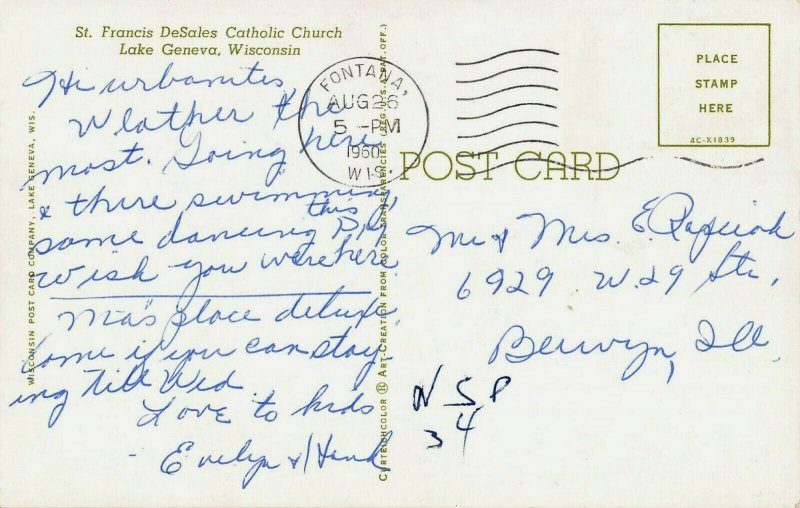 St. Francis DeSales Catholic Church
Lake Geneva, Wisconsin
Hi urbanites
Weather the
most. Going here
& there swimming
some dancing this P.M.
wish you were here.
Ma's place deluxe.
Come if you can stay
ing till Wed.
Love to kids
- Evelyn & Hank
WISCONSIN POST CARD COMPANY, LAKE GENEVA, WIS.
CURTEICHCOLOR ® ART-CREATION FROM COLOR TRANSPARENCIES (REG. U.S.A. PAT. OFF.)
FONTANA,
AUG 26
5 - PM
1960
WIS
PLACE
STAMP
HERE
4C-K1839
POST CARD
Mr & Mrs. E.
6929 W. 29 Str.
Berwyn, Ill.
N S P
34